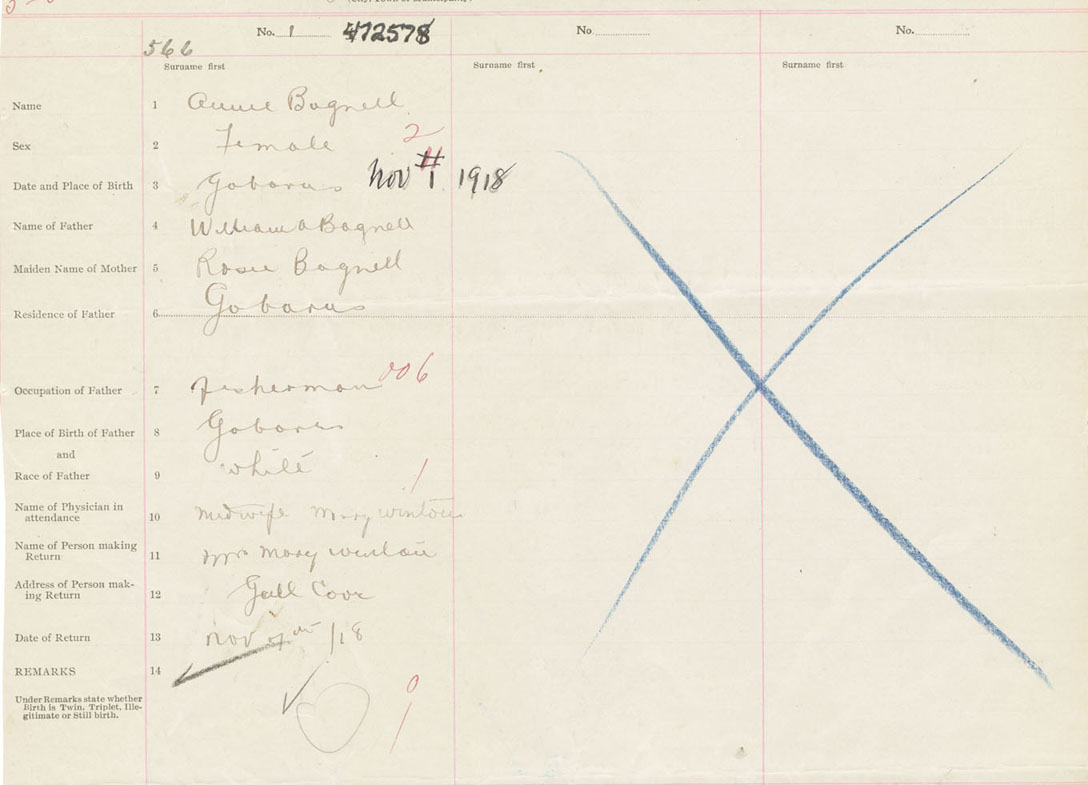 No. 1 472578 No. No.
566
Surname first Surname first Surname first
Name 1 Annie Bagnell
2
Sex 2 Female
Date and Place of Birth 3 Gabarus Nov 1 1918
Name of Father 4 William A Bagnell
Maiden Name of Mother 5 Rosie Bagnell
Residence of Father 6 Gabarus
Occupation of Father 7 Fisherman 006
Place of Birth of Father 8 Gabarus
and
Race of Father 9 white
1
Name of Physician in
attendance 10 Midwife Mary
Name of Person making
Return 11 Mrs Mary
Address of Person mak-
ing Return 12 Gull Cove
Date of Return 13 Nov /18
REMARKS 14
Under Remarks state whether
Birth is Twin, Triplet, Ille-
gitimate or Still birth.
0
1